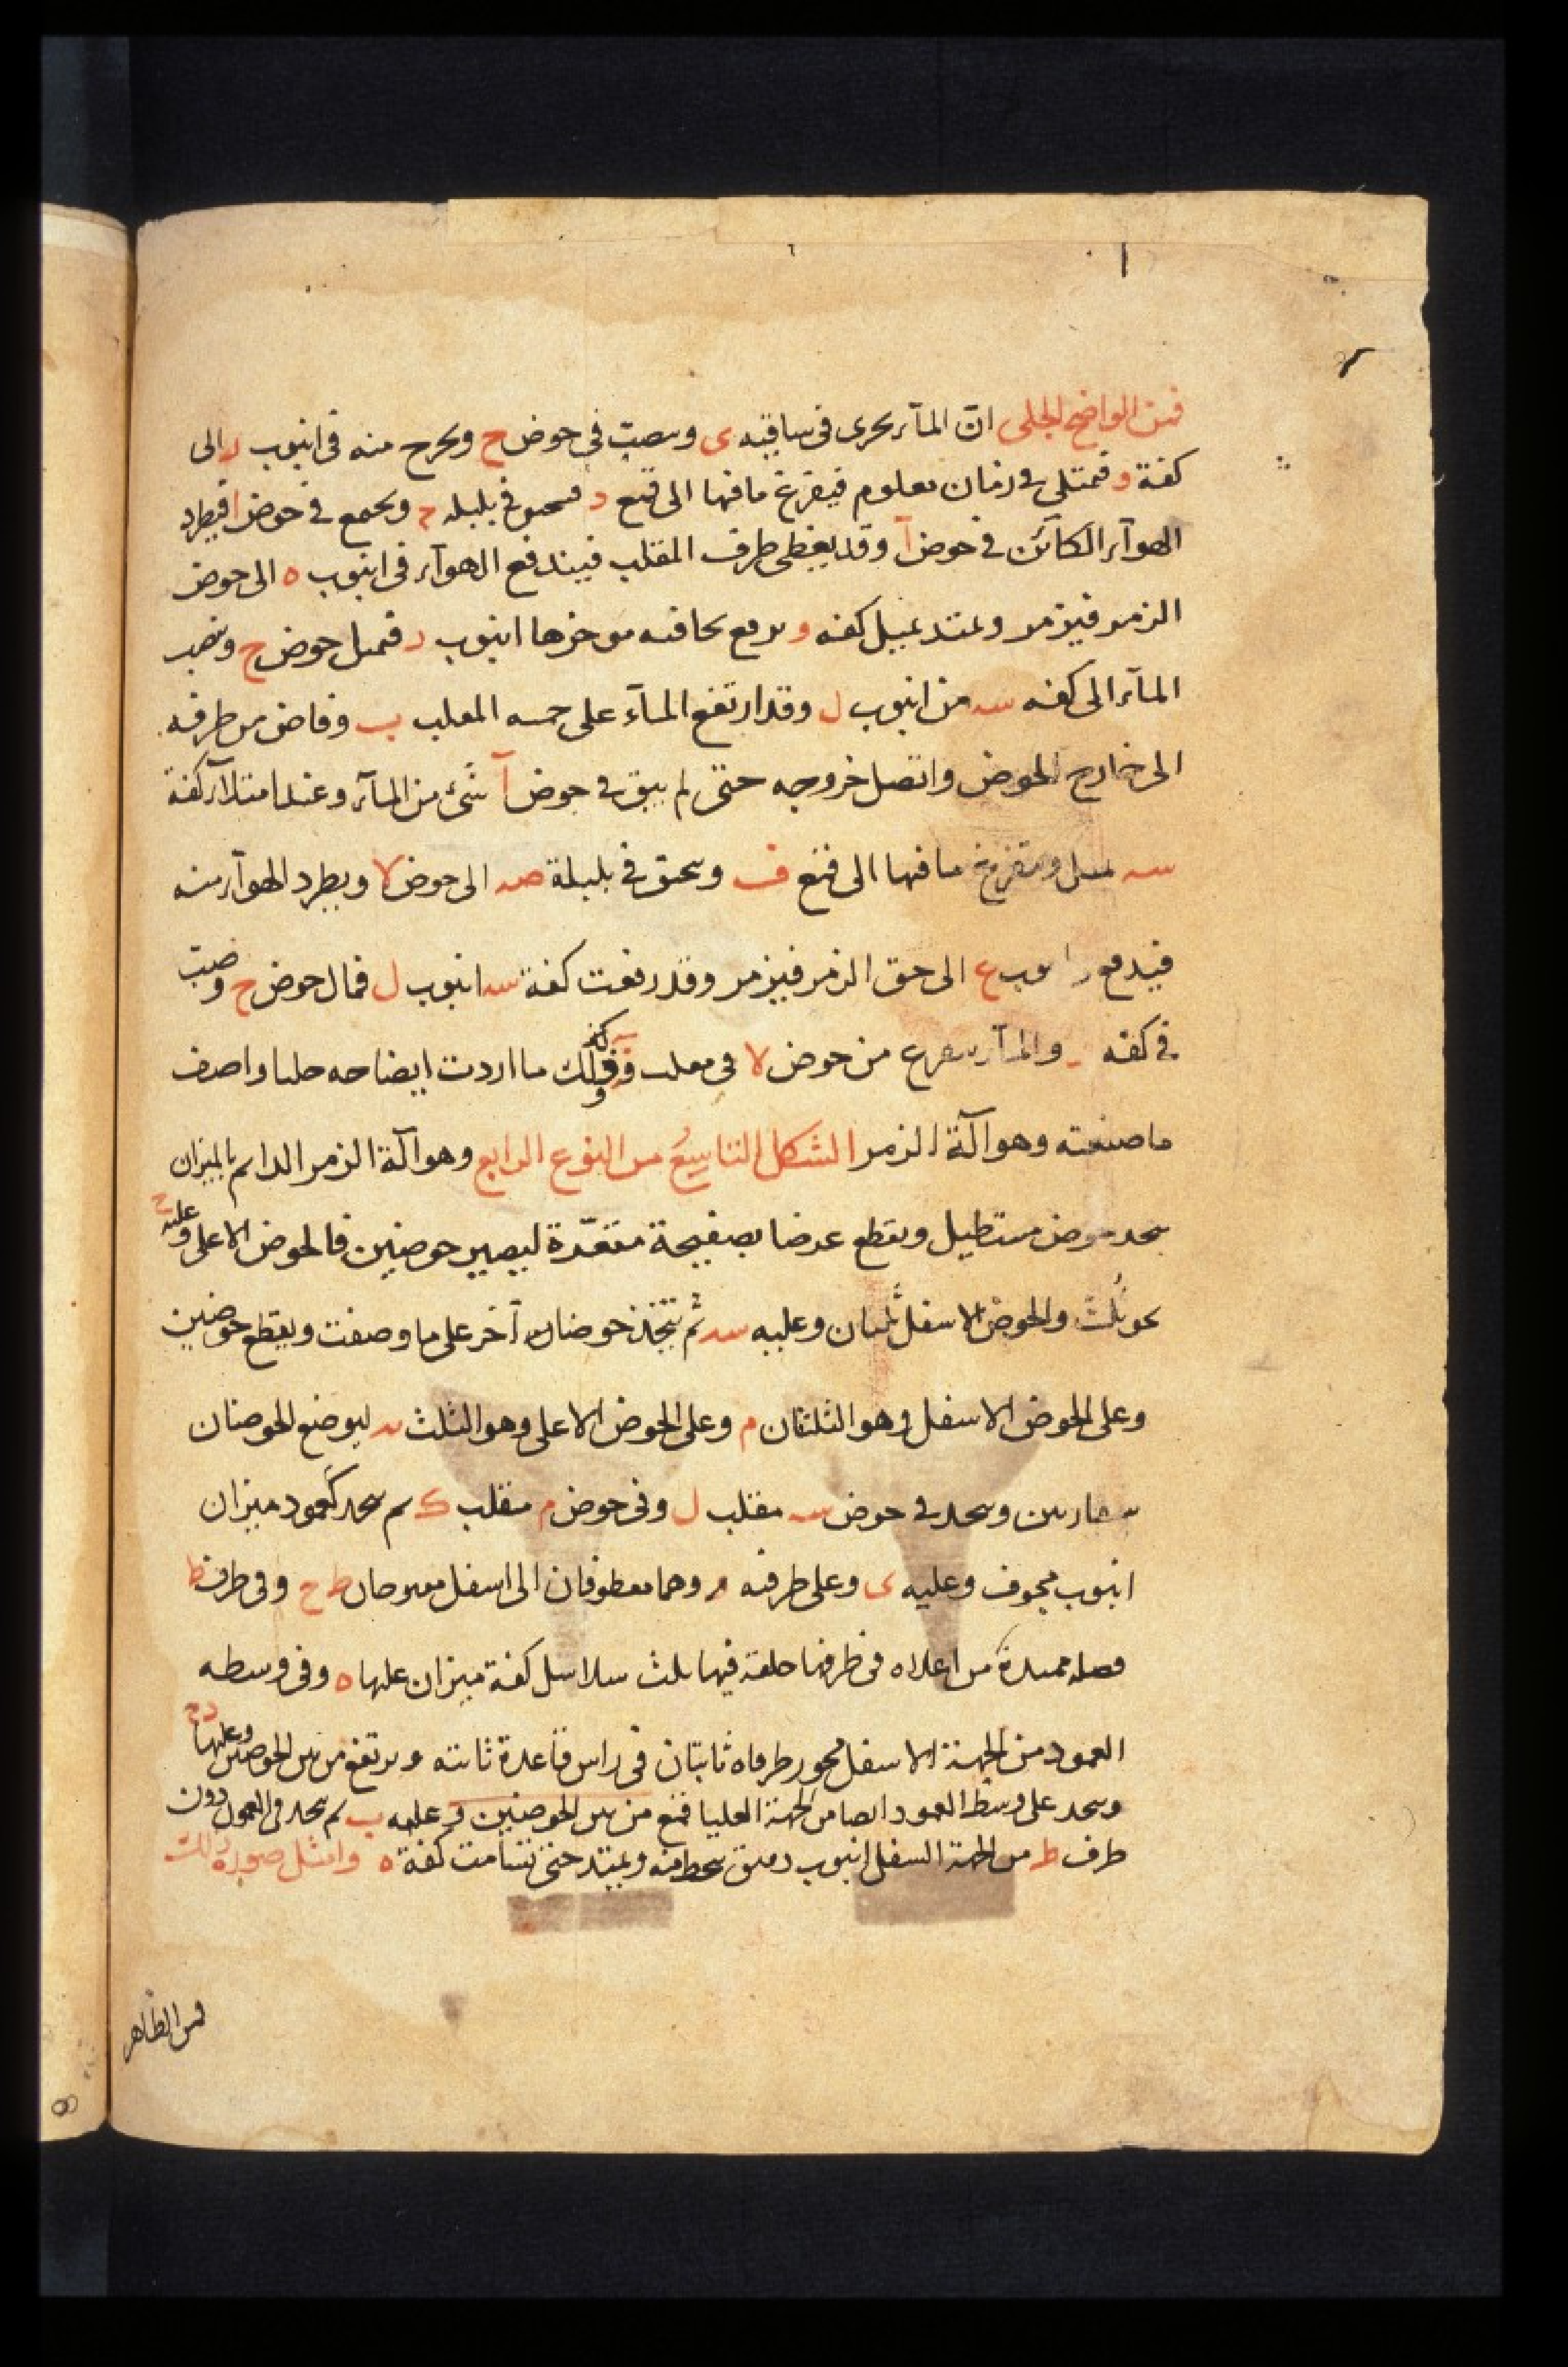 فمن الواضح الجلى ان المآء يجرى فى ساقيه ى ويصبّ فى حوض ح ويخرج منه فى انبوب ر الى
كفة و فتمتلى فى زمان معلوم فيفرغ ما فيها الى قمع د فى بليله ويجمع فى حوض ا فيطرد
الهوآء الكآئن فى حوض آ وقد يغطى طرف المقلب فيندفع الهوآء فى انبوب ه الى حوض
الزمر فيزمر وعند تميل كفه و يرفع بحافته موخرها انبوب ر فتميل حوض ح ويصب
المآء الى كفه سه من انبوب ل وقد ارتفع المآء على المقلب ب وفاض من طرفه
الى خارج الحوض واتصل خروجه حتى لم يبق فى حوض آ شئ من المآء وعند امتلآء كفة
سه تميل ويتفرغ ما فيها الى قمع ف فى بليلة صه الى حوض لا ويطرد الهوآء منه
انبوب ع الى حق الزمر فيزمر وقد رفعت كفة سه انبوب ل فمال حوض ح وصبّ
فى كفه والمآء يتفرغ من حوض لا فى مقلب وذلك ما اردت ايضاحه جليا واصف
ما صنعته وهو آلة الزمر الشكل التاسع من النوع الرابع وهو آلة الزمر الدايم بالميزان
يتخذ حوض مستطيل ويقطع عرضا بصفيحة مقعّرة ليصير حوضين فالحوض الاعلى وعليه ح
نحو ثُلث والحوض الاسفل ثلثان وعليه سه ثم يتخذ حوضا آخر على ما وصفت ويقطع حوضين
وعلى الحوض الاسفل وهو الثلثان م وعلى الحوض الاعلى وهو الثلث ليوضع الحوضان
متقاربين ويتخذ فى حوض سه مقلب ل وفى حوض م مقلب ك ثم يتخذ كعمود ميزان
انبوب مجوف وعليه ى وعلى طرفيه وهما معطوفان الى اسفل مفتوحان ط ح وفى طرف ط
فضله ممتدة من اعلاه فى طرفها حلقة فيها ثلث سلاسل كفة ميزان عليها ه وفى وسطه
العمود من الجهة الاسفل محور طرفاه ثابتان فى راس قاعدة ثابته ويرتفع من بين الحوضين وعليها
ويتخذ على وسط العمود ايضا من الجهة العليا قمع من بين الحوضين و عليه ب ثم يتخذ فى العمود دون
طرف ط من الجهة السفلى انبوب دقيق ويمتد حتى تسامت كفة ه وامثل صورة ذلك
فمن الظاهر